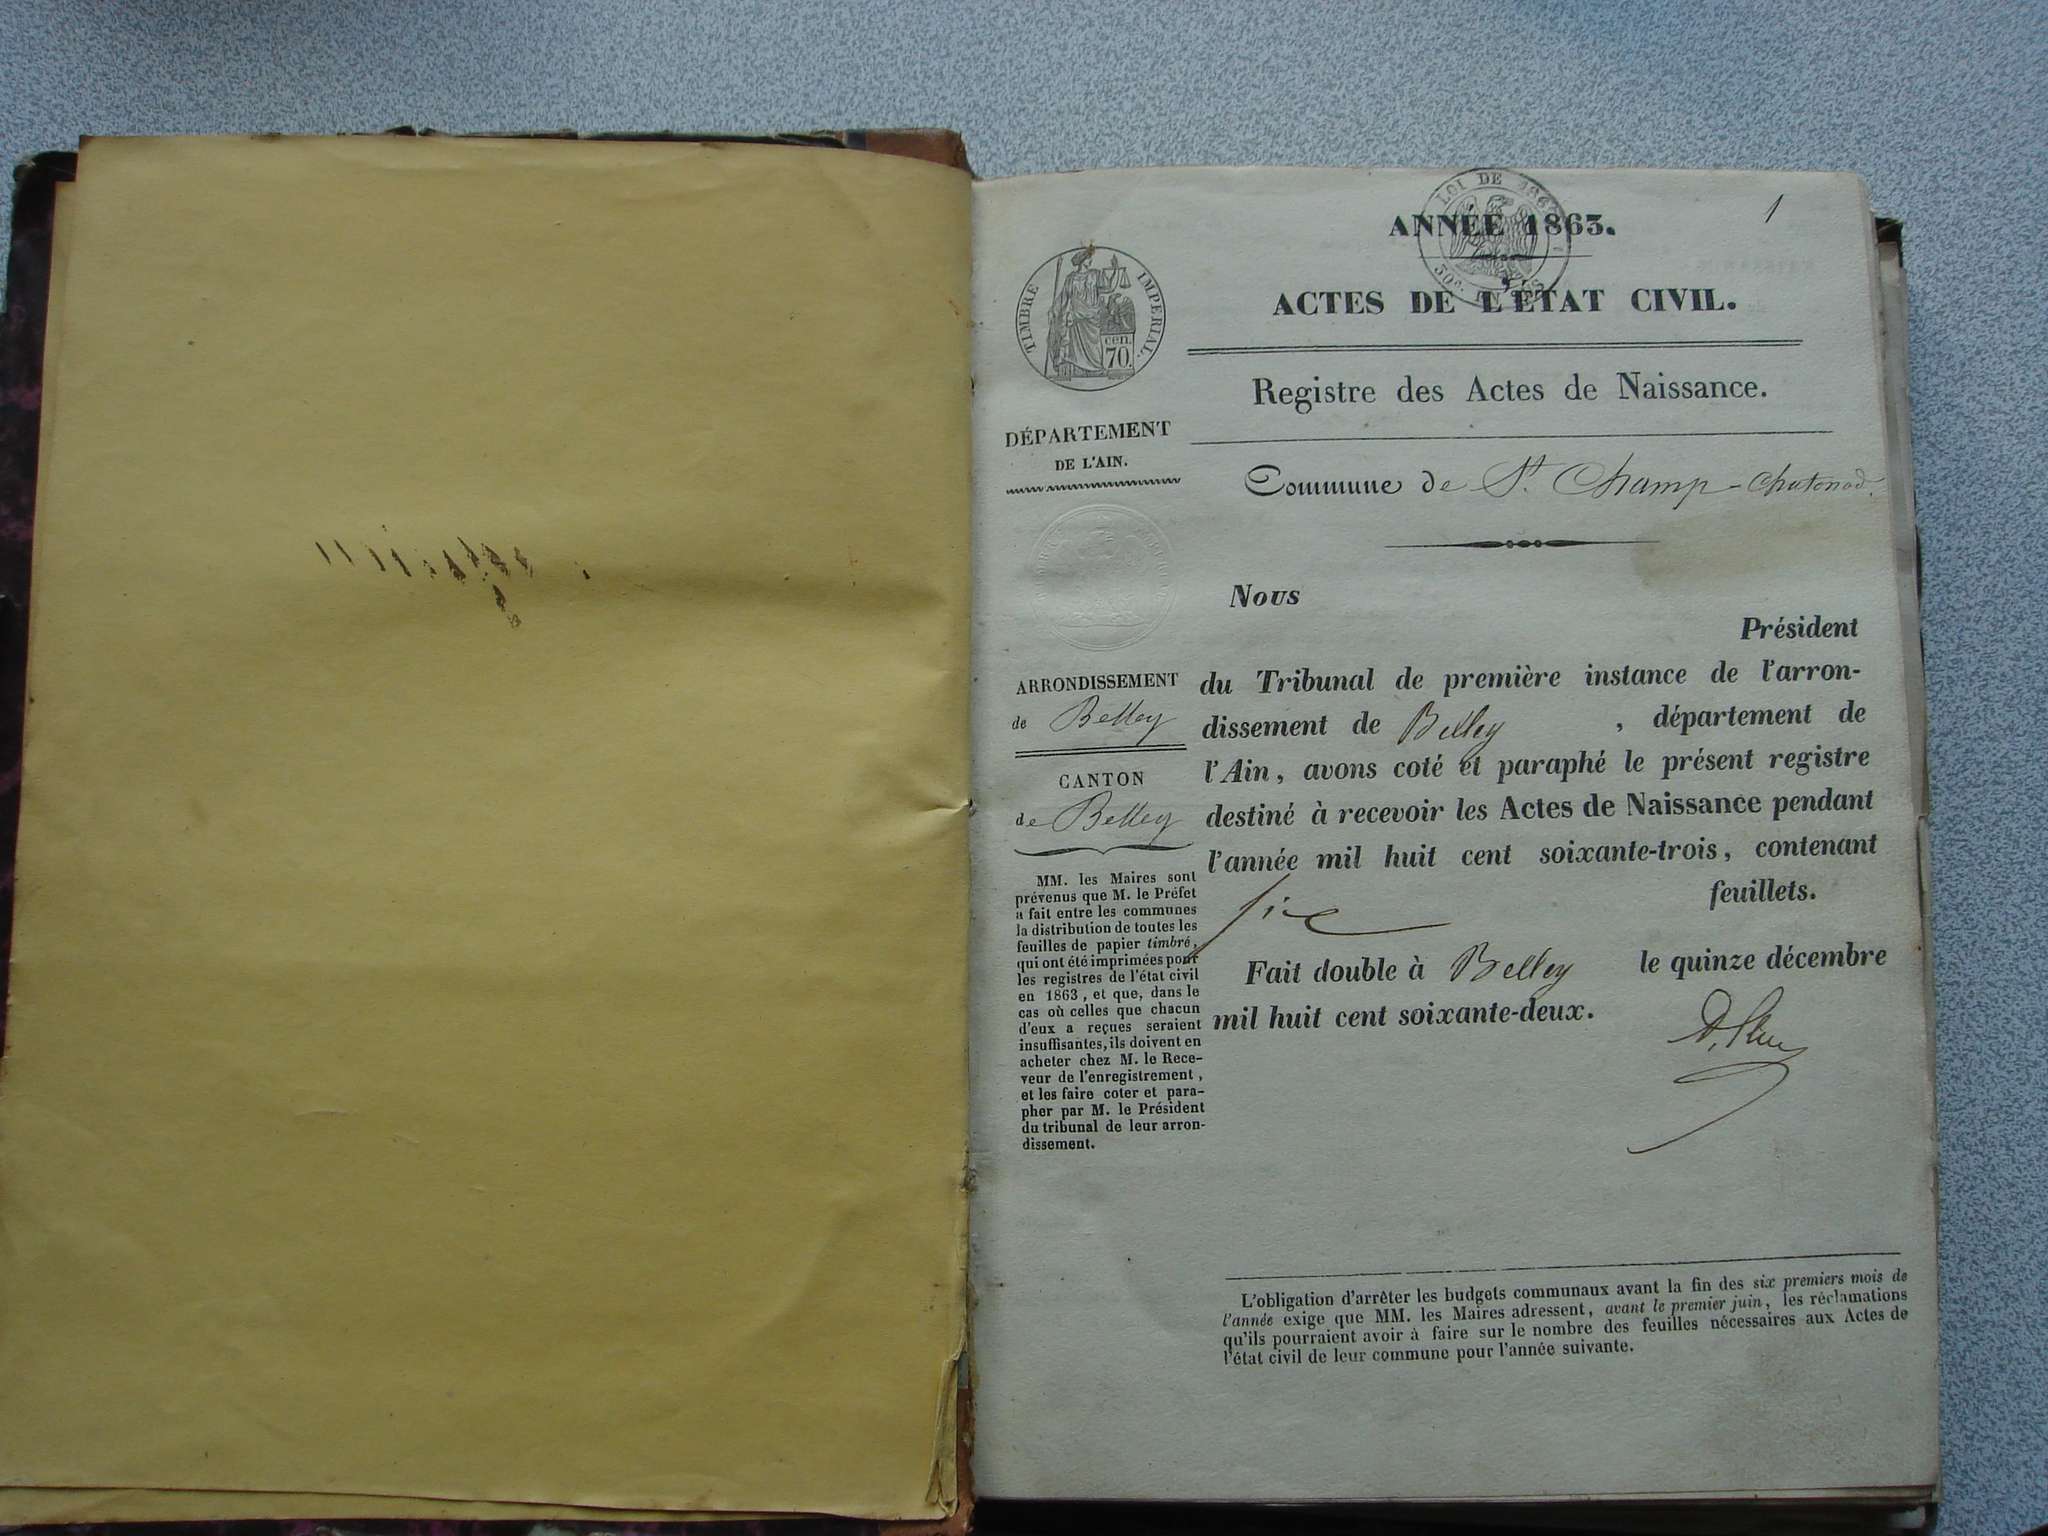 1
LOI DE 1862
50c.
ANNÉE 1863.
ACTES DE L'ÉTAT CIVIL.
Registre des Actes de Naissance.
Commune de St. Champ-Chatonod.
TIMBRE IMPERIAL.
cen.
70.
DÉPARTEMENT
DE L'AIN.
ARRONDISSEMENT
de Belley
CANTON
de Belley
MM. les Maires sont
prévenus que M. le Préfet
a fait entre les communes
la distribution de toutes les
feuilles de papier timbré,
qui ont été imprimées pour
les registres de l'état civil
en 1863, et que, dans le
cas où celles que chacun
d'eux a reçues seraient
insuffisantes, ils doivent en
acheter chez M. le Rece-
veur de l'enregistrement,
et les faire coter et para-
pher par M. le Président
du tribunal de leur arron-
dissement.
Nous
Président
du Tribunal de première instance de l'arron-
dissement de Belley , département de
l'Ain, avons coté et paraphé le présent registre
destiné à recevoir les Actes de Naissance pendant
l'année mil huit cent soixante-trois, contenant
six feuillets.
Fait double à Belley le quinze décembre
mil huit cent soixante-deux.
L'obligation d'arrêter les budgets communaux avant la fin des six premiers mois de
l'année exige que MM. les Maires adressent, avant le premier juin, les réclamations
qu'ils pourraient avoir à faire sur le nombre des feuilles nécessaires aux Actes de
l'état civil de leur commune pour l'année suivante.